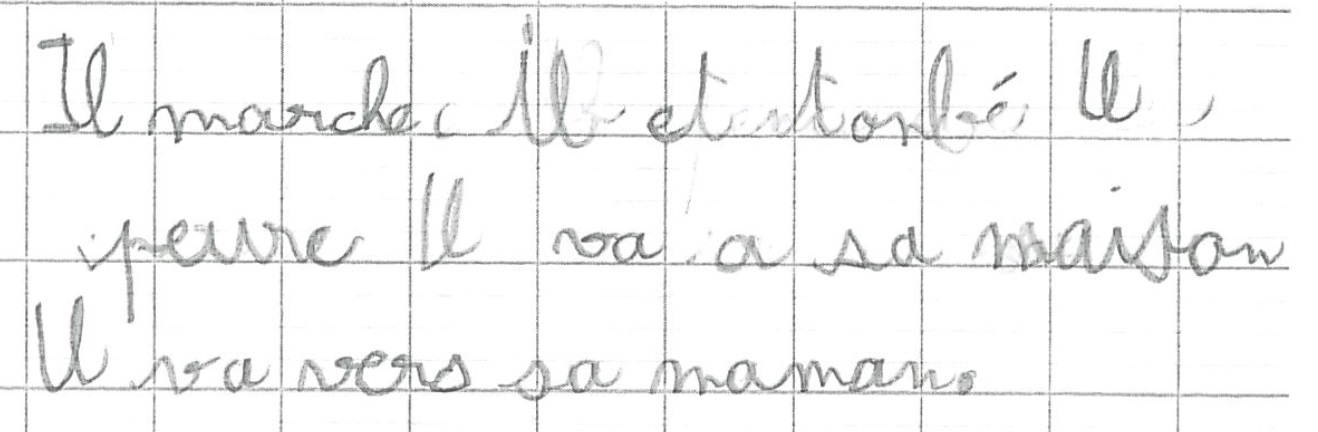 Il marche il et tonbé Il
peure Il va a sa maison
Il va vers sa maman.